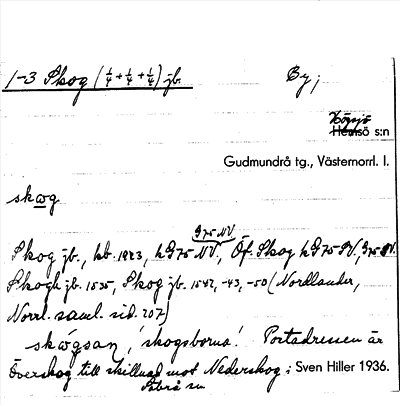 1-3 Skog (¼+¼+¼) jb. By;
Högsjö
Hemsö s:n
Gudmundrå tg., Västernorrl. l.
skωg
G75 NV
Skog jb., kb. 1923, h G75 NV, Öf. Skog h G75 SV, G75 NV.
Skogh jb. 1535, Skog jb. 1542, -43, -50 (Nordlander,
Norrl. saml. sid. 207)
skωgsan, 'skogsborna'. Postadressen är
Överskog till skillnad mot Nederskog i Sven Hiller 1936.
Säbrå sn